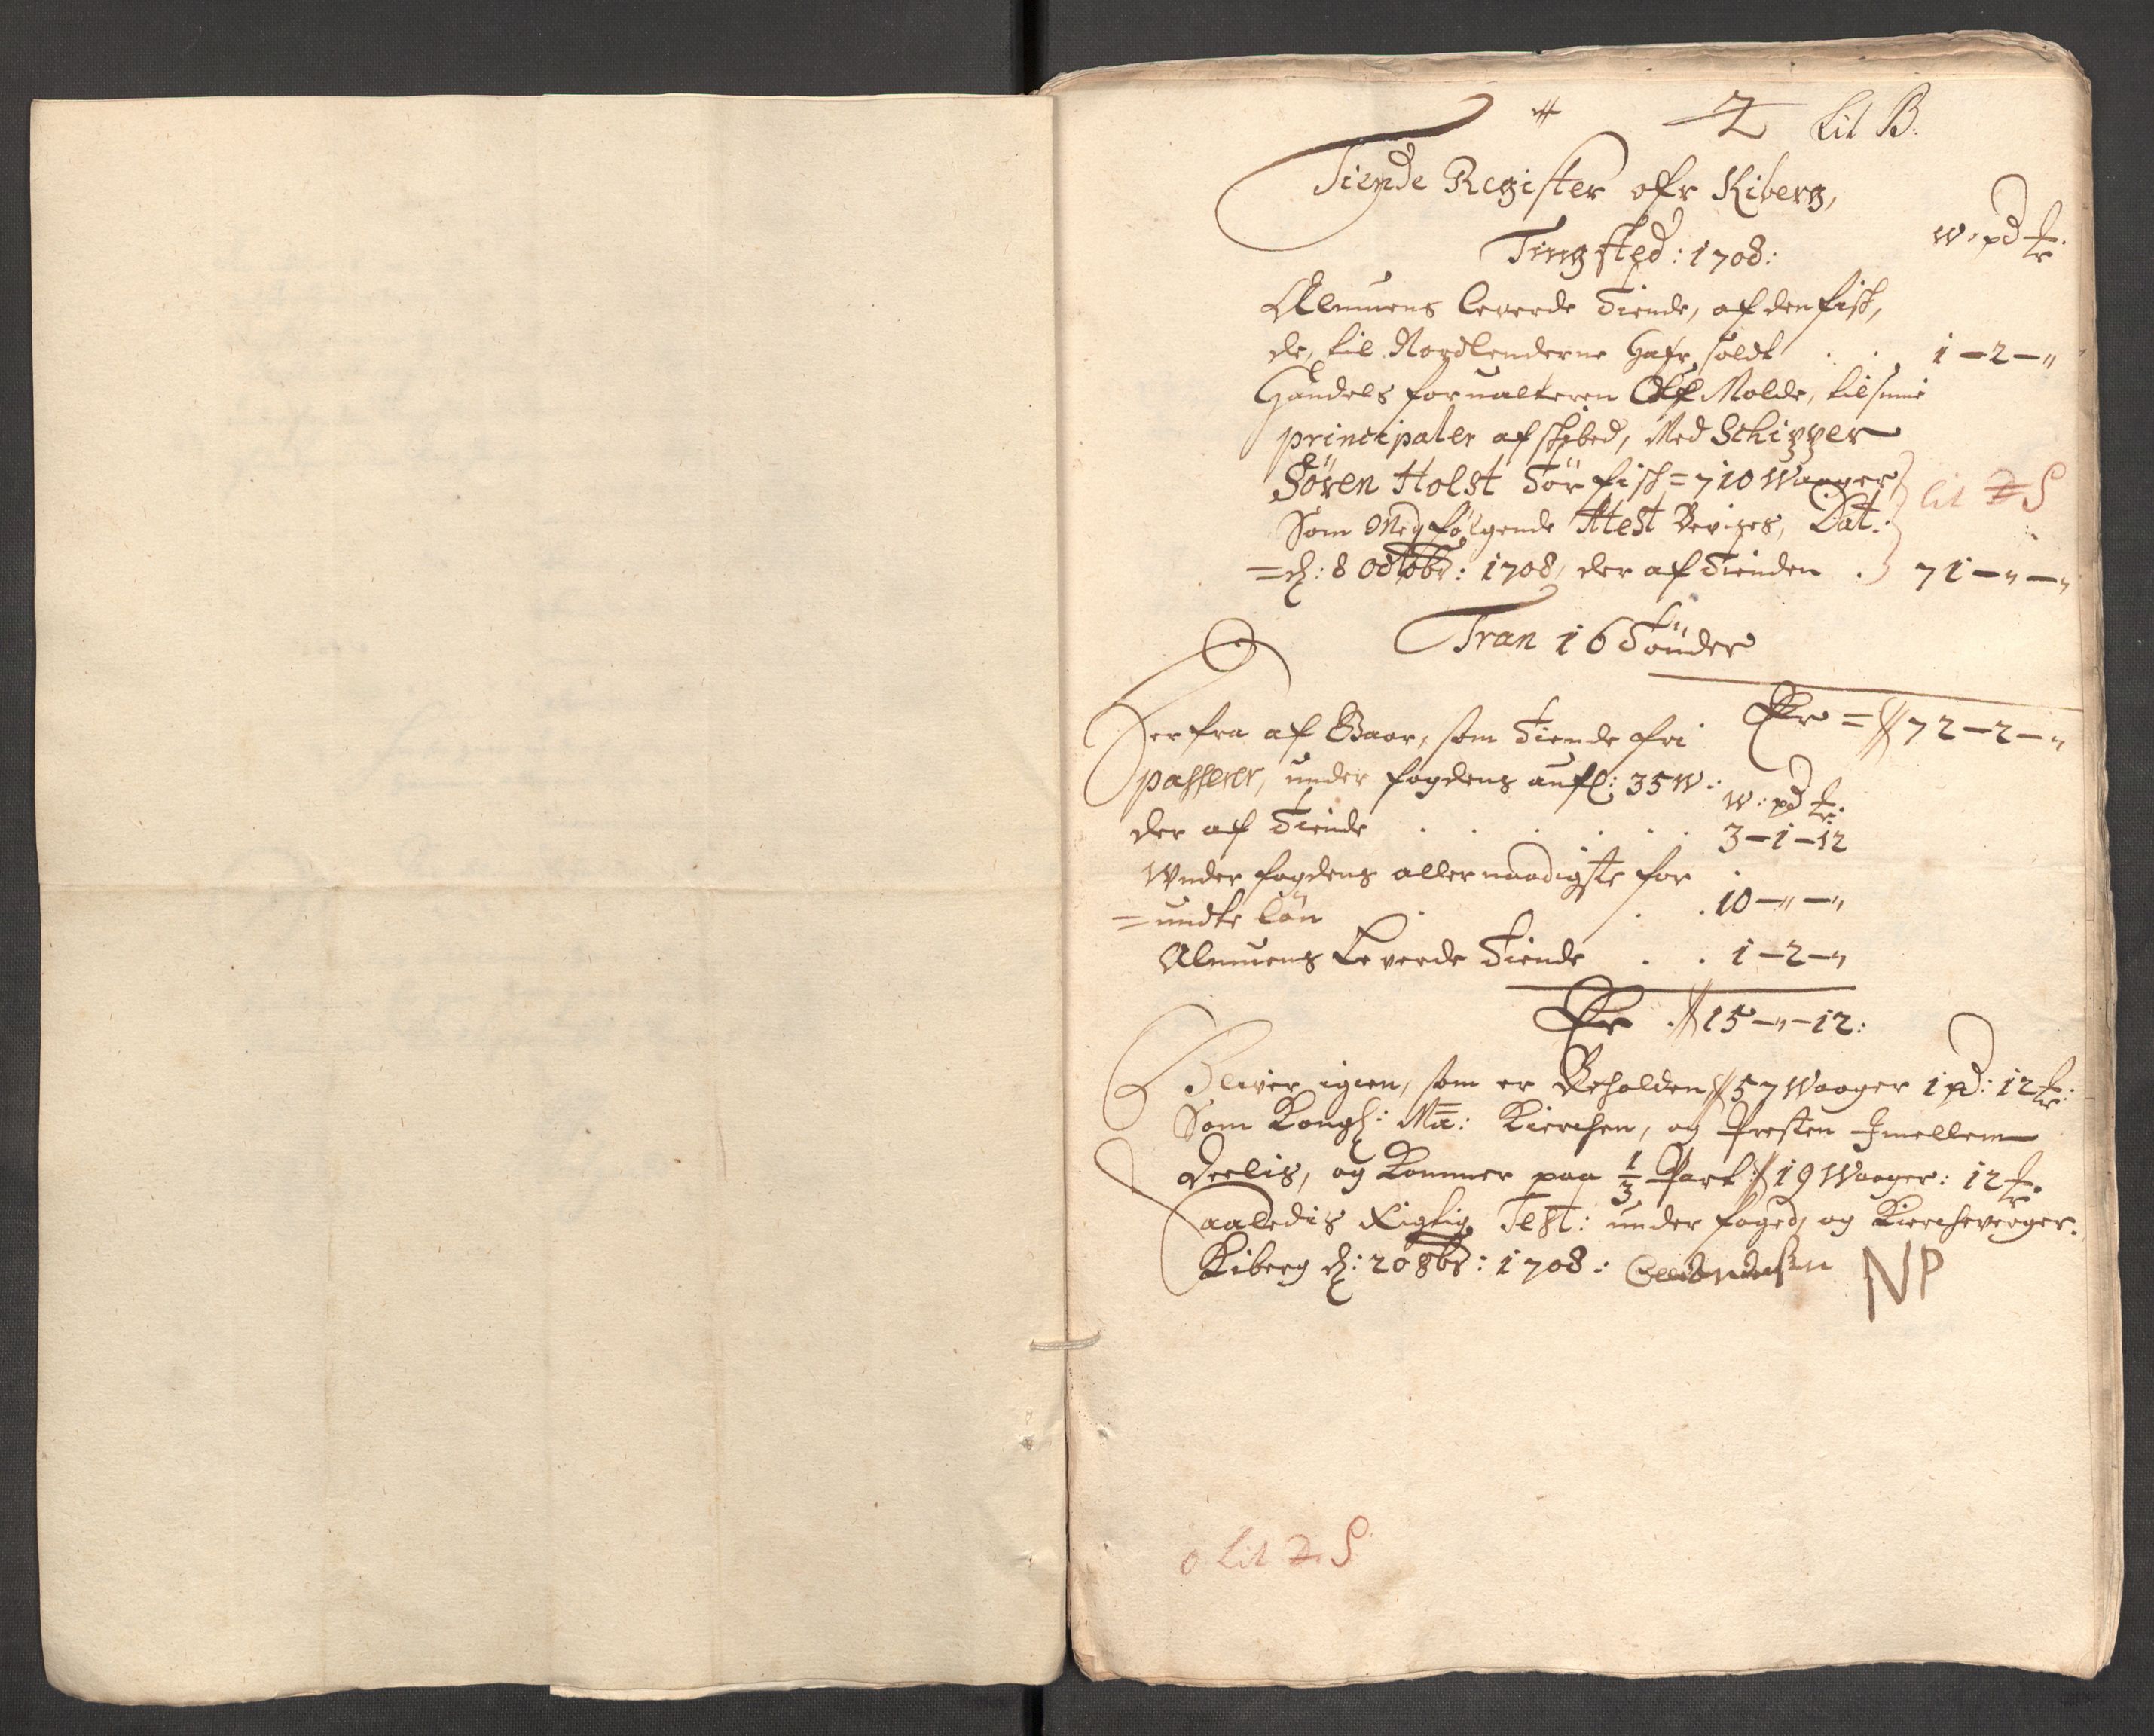 2 Lit B.
Tiende Register ofr Kiberg,
Tingsted: 1708:
W: pd ℔:
Almuens leverde Tiende, af den fisk,
de, til Nordlenderne Hafr soldt . . 1-2-"
Handels forualteren Olf Molde, til sinne
principaler af skibed, Med Schipper
Sören Holst Tör fisk = 710 Waager
lit D S
Som Medfölgende Attest Bevises, Dat:
= d: 8 Octobr: 1708, der af Tienden . 71-"-"
Tran 16 Tönder
Er = 72-2-"
Herfra af Gaar, som Tiende fri
passerer, under fogdens aufl: 35 W:
W: pd ℔:
der af Tiende . . . . . . 3-1-12
Under fogdens allernaadigste for
= undte Lön . . . 10-"-"
Almuens Leverde Tiende . . 1-2-"
Er 15-"-12:
Bliver igien, som er Beholden 57 Waager 1 pd: 12 ℔:
Som Kongl: Ma: Kierchen, og Presten Imellem
deelis, og Kommer paa 1/3 Part: 19 Waager: 12 ℔:
Saaledis Rigtig Test: under foged, og Kiercheverger.
Kiberg d: 20 8br: 1708: NP
o Lit D. S